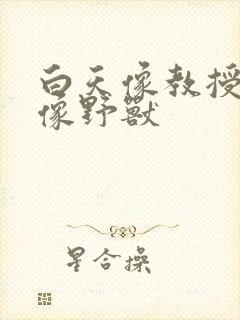 白天像教授
像野獸
星合操